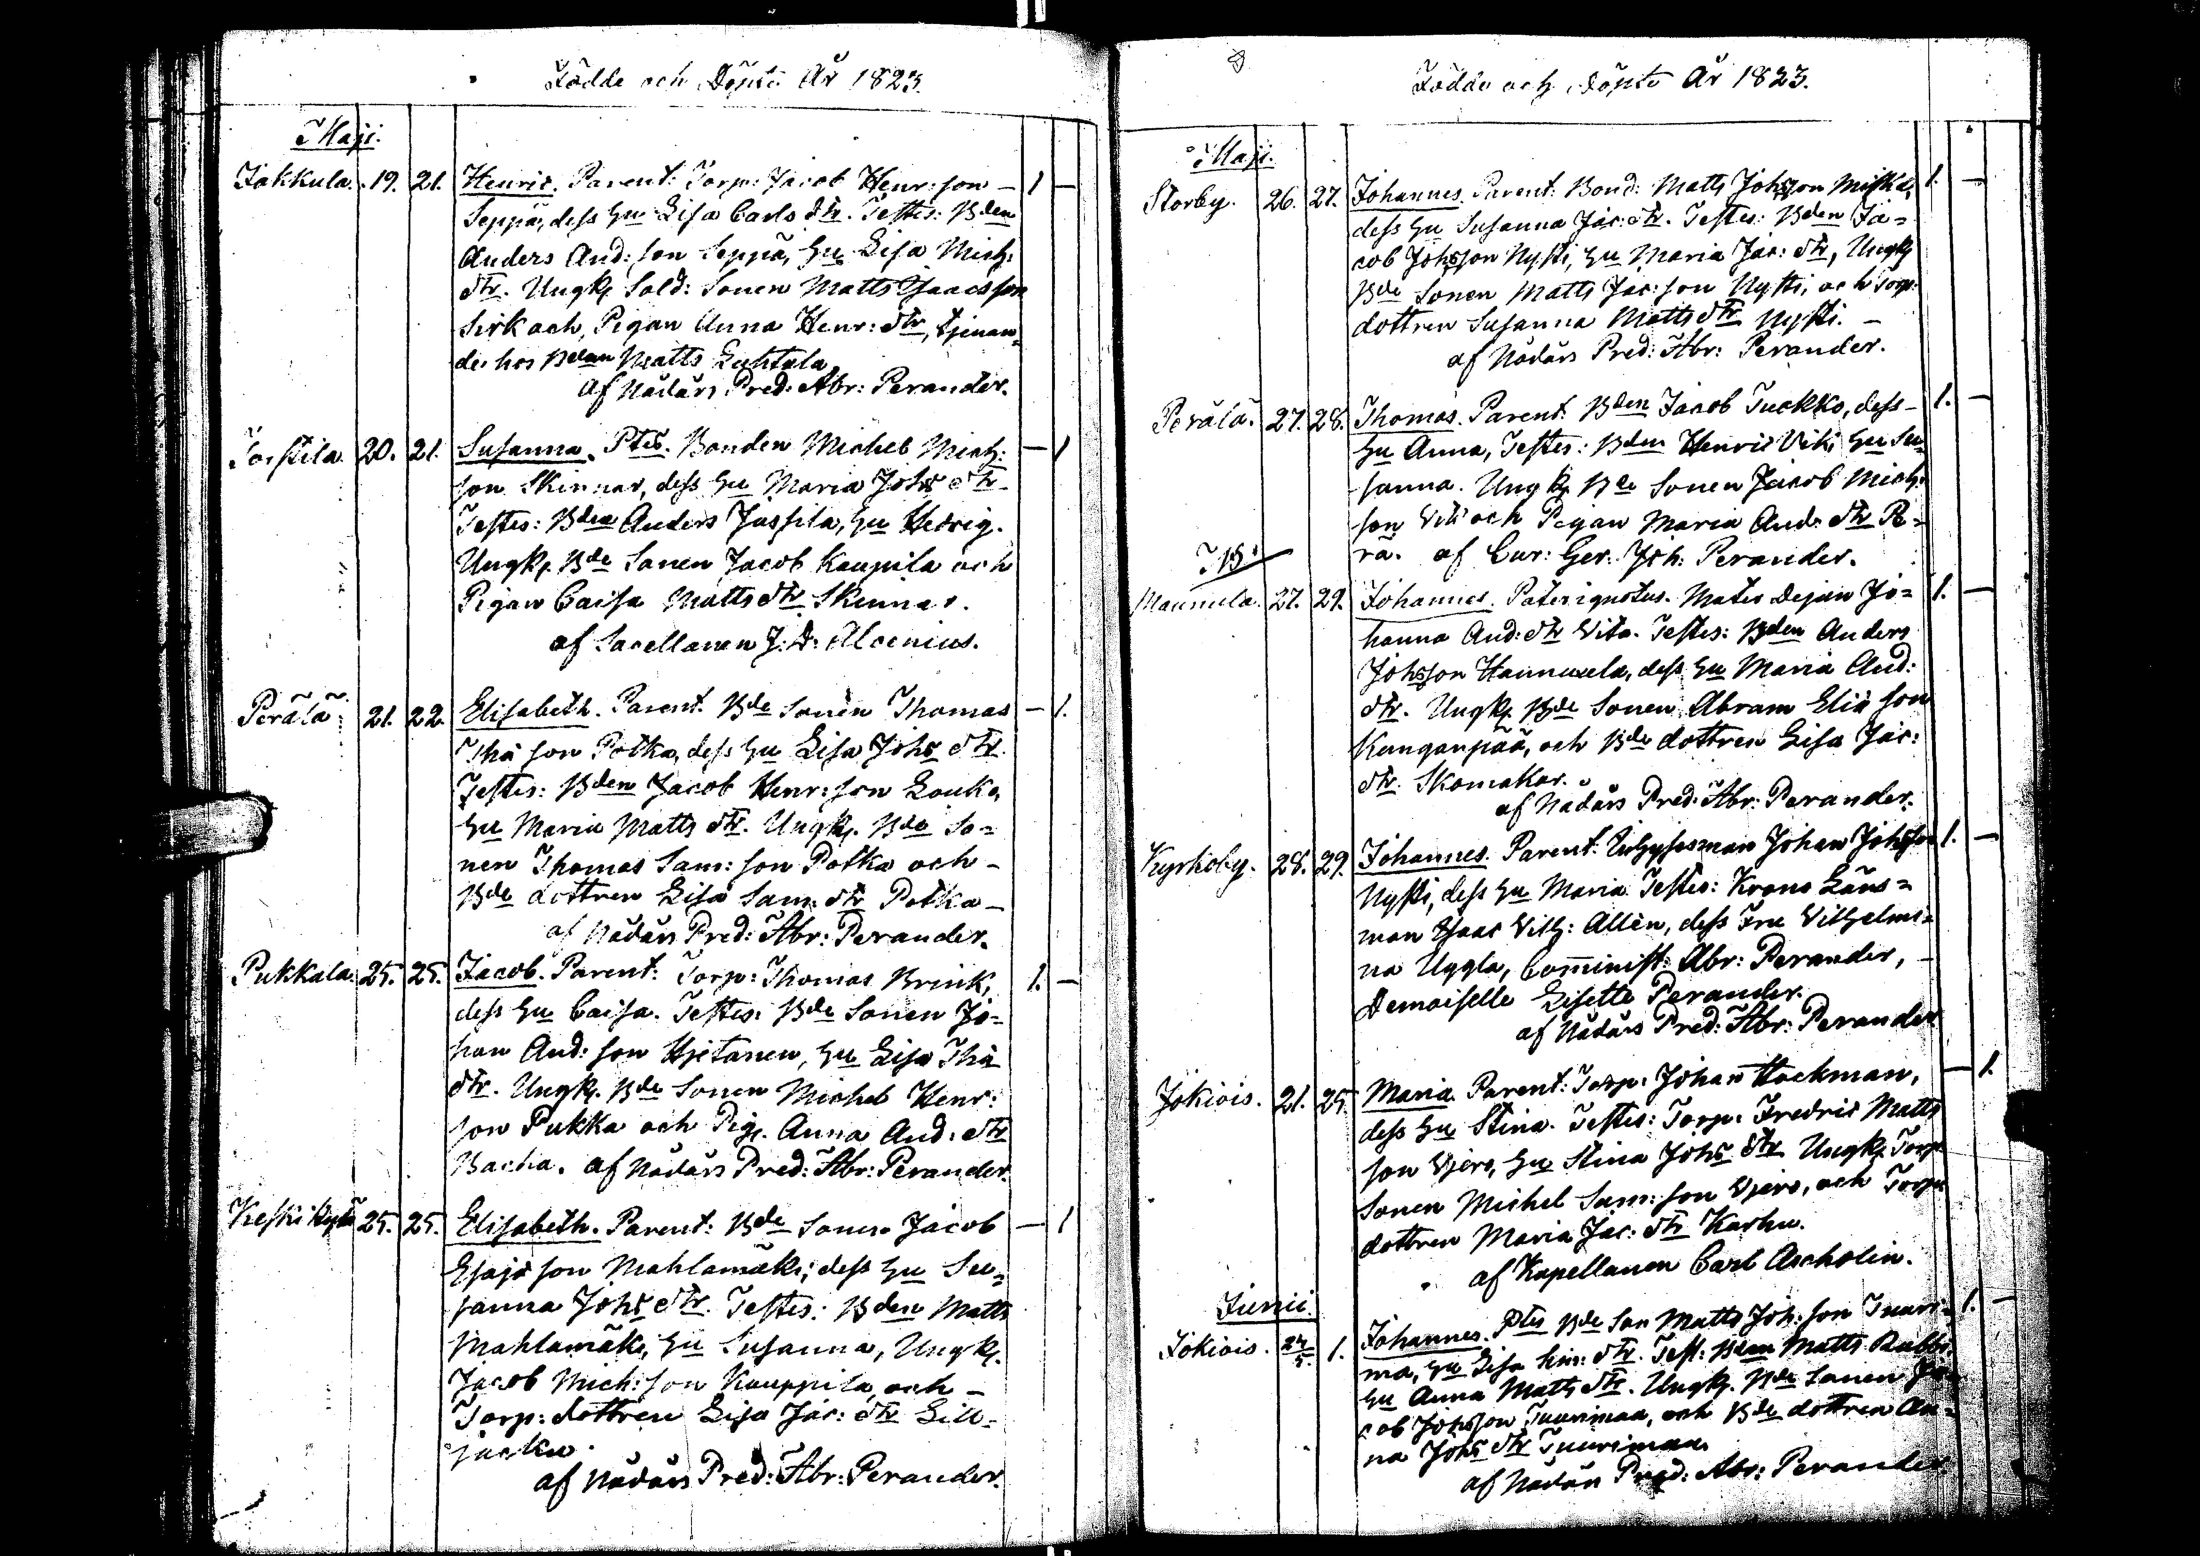 Födde och Döpte År 1823.
Maji.
Jakkula. 19. 21. Henric. Parent: Torp: Jacob Henr: son – 1 –
Seppä, dess Hu Lisa Carls dtr. Testes: Bden
Anders And: son Seppä, Hu Lisa Mich:
dtr. Ungk. Sold: Sonen Matts Isaacsson
Sirk och Pigan Anna Henr: dtr, tjenan=
de hos Bden Matts Luhtala
af Nådårs Pred: Abr: Perander.
20. 21. Susanna. Ptes. Bonden Michel Mich: – 1
son Skinnar, dess Hu Maria Johs dtr
Testes: Bden Anders Jussila, Hu Hedvig.
Ungk. Bde Sonen Jacob Kaupila och
Pigan Caisa Matts dtr Skinnar.
af Sacellanen J. D. Alcenius.
Perälä. 21. 22. Elisabeth. Parent. Bde Sonen Thomas – 1.
Thå son Potka, dess Hu Lisa Johs dtr.
Testes: Bden Jacob Henr: son Louko,
Hu Maria Matts dtr. Ungk. Bde So=
nen Thomas Sam: son Potka och –
Bde dottren Lisa Sam: dtr Potka –
af Nådårs Pred: Abr: Perander.
Pukkala. 25. 25. Jacob. Parent: Torp: Thomas Brink, 1. –
dess Hu Caisa. Testes: Bde Sonen Jo=
han And: son Hjetanen, Hu Lisa Thå
dtr. Ungk. Bde Sonen Michel Henr:
son Pukka och Pig. Anna And: dtr
Bacha. af Nådårs Pred: Abr: Perander.
Keskikylä 25. 25. Elisabeth. Parent: Bde Sonen Jacob – 1
Esajæ son Mahlamäki, dess Hu Su=
sanna Johs dtr. Testes: Bden Matts
Mahlamäki, Hu Susanna, Ungk.
Jacob Mich: son Kauppila, och –
Torp: dottren Lisa Jac: dtr Lill=
af Nådårs Pred: Abr: Perander.
Födde och Döpte År 1823.
Maji.
Storby. 26. 27. Johannes. Parent: Bond: Matts Johsson Miska, 1. –
dess Hu Susanna Jac: dtr. Testes: Bden Ja=
cob Johsson Nysti, Hu Maria Jac: dtr, Ungk
Bde Sonen Matts Jac: son Nysti, och Torp:
dottren Susanna Matts dtr Nysti. –
af Nådårs Pred: Abr: Perander.
Perälä. 27. 28. Thomas. Parent. Bden Jacob Tuckko, dess – 1. –
Hu Anna, Testes: Bden Henric Viki Hu Su=
sanna. Ungk. Bde Sonen Jacob Mich:
son Viki och Pigan Maria And: dtr Pe=
rä. af Cur: Ger. Joh: Perander.
Mannula. 27. 29. Johannes. Pater ignotus. Mater Dejan Jo= 1. –
hanna And: dtr Vita. Testes: Bden Anders
Johsson Hannuxela, dess Hu Maria And:
dtr. Ungk. Bde Sonen Abram Eliæ son
Kanganpää, och Bde dottren Lisa Jac:
dtr. Skomakar.
af Nådårs Pred: Abr: Perander.
Kyrkoby. 28. 29. Johannes. Parent: Johan Johsson 1. –
Nysti, dess Hu Maria. Testes: Krono Läns=
man Isaac Vilh: Allén, dess Fru Vilhelmi=
na Uggla, Comminist: Abr: Perander, –
Demoiselle Lisette Perander.
af Nådårs Pred: Abr: Perander
Jokiois. 21. 25. Maria. Parent: Torp: Johan Hackman, – 1.
dess Hu Stina. Testes: Torp: Fredric Matts
son Hu Stina Johs dtr Ungk. Torp
Sonen Michel Sam: son och Torp:
dottren Maria Jac: dtr Karhu.
af Kapellanen Carl Ascholin.
Junii.
Jokiois. 24/5. 1. Johannes. Ptes Bde Son Matts Joh: son Tuuri= 1. –
ma, Hu Lisa Sim: dtr. Test: Bden Matts Rabbi,
Hu Anna Matts dtr. Ungk. Bde Sonen Ja=
cob Johsson Tuurimaa, och Bde dottren An=
na Johs dtr Tuurimaa.
af Nådårs Pred: Abr: Perander.